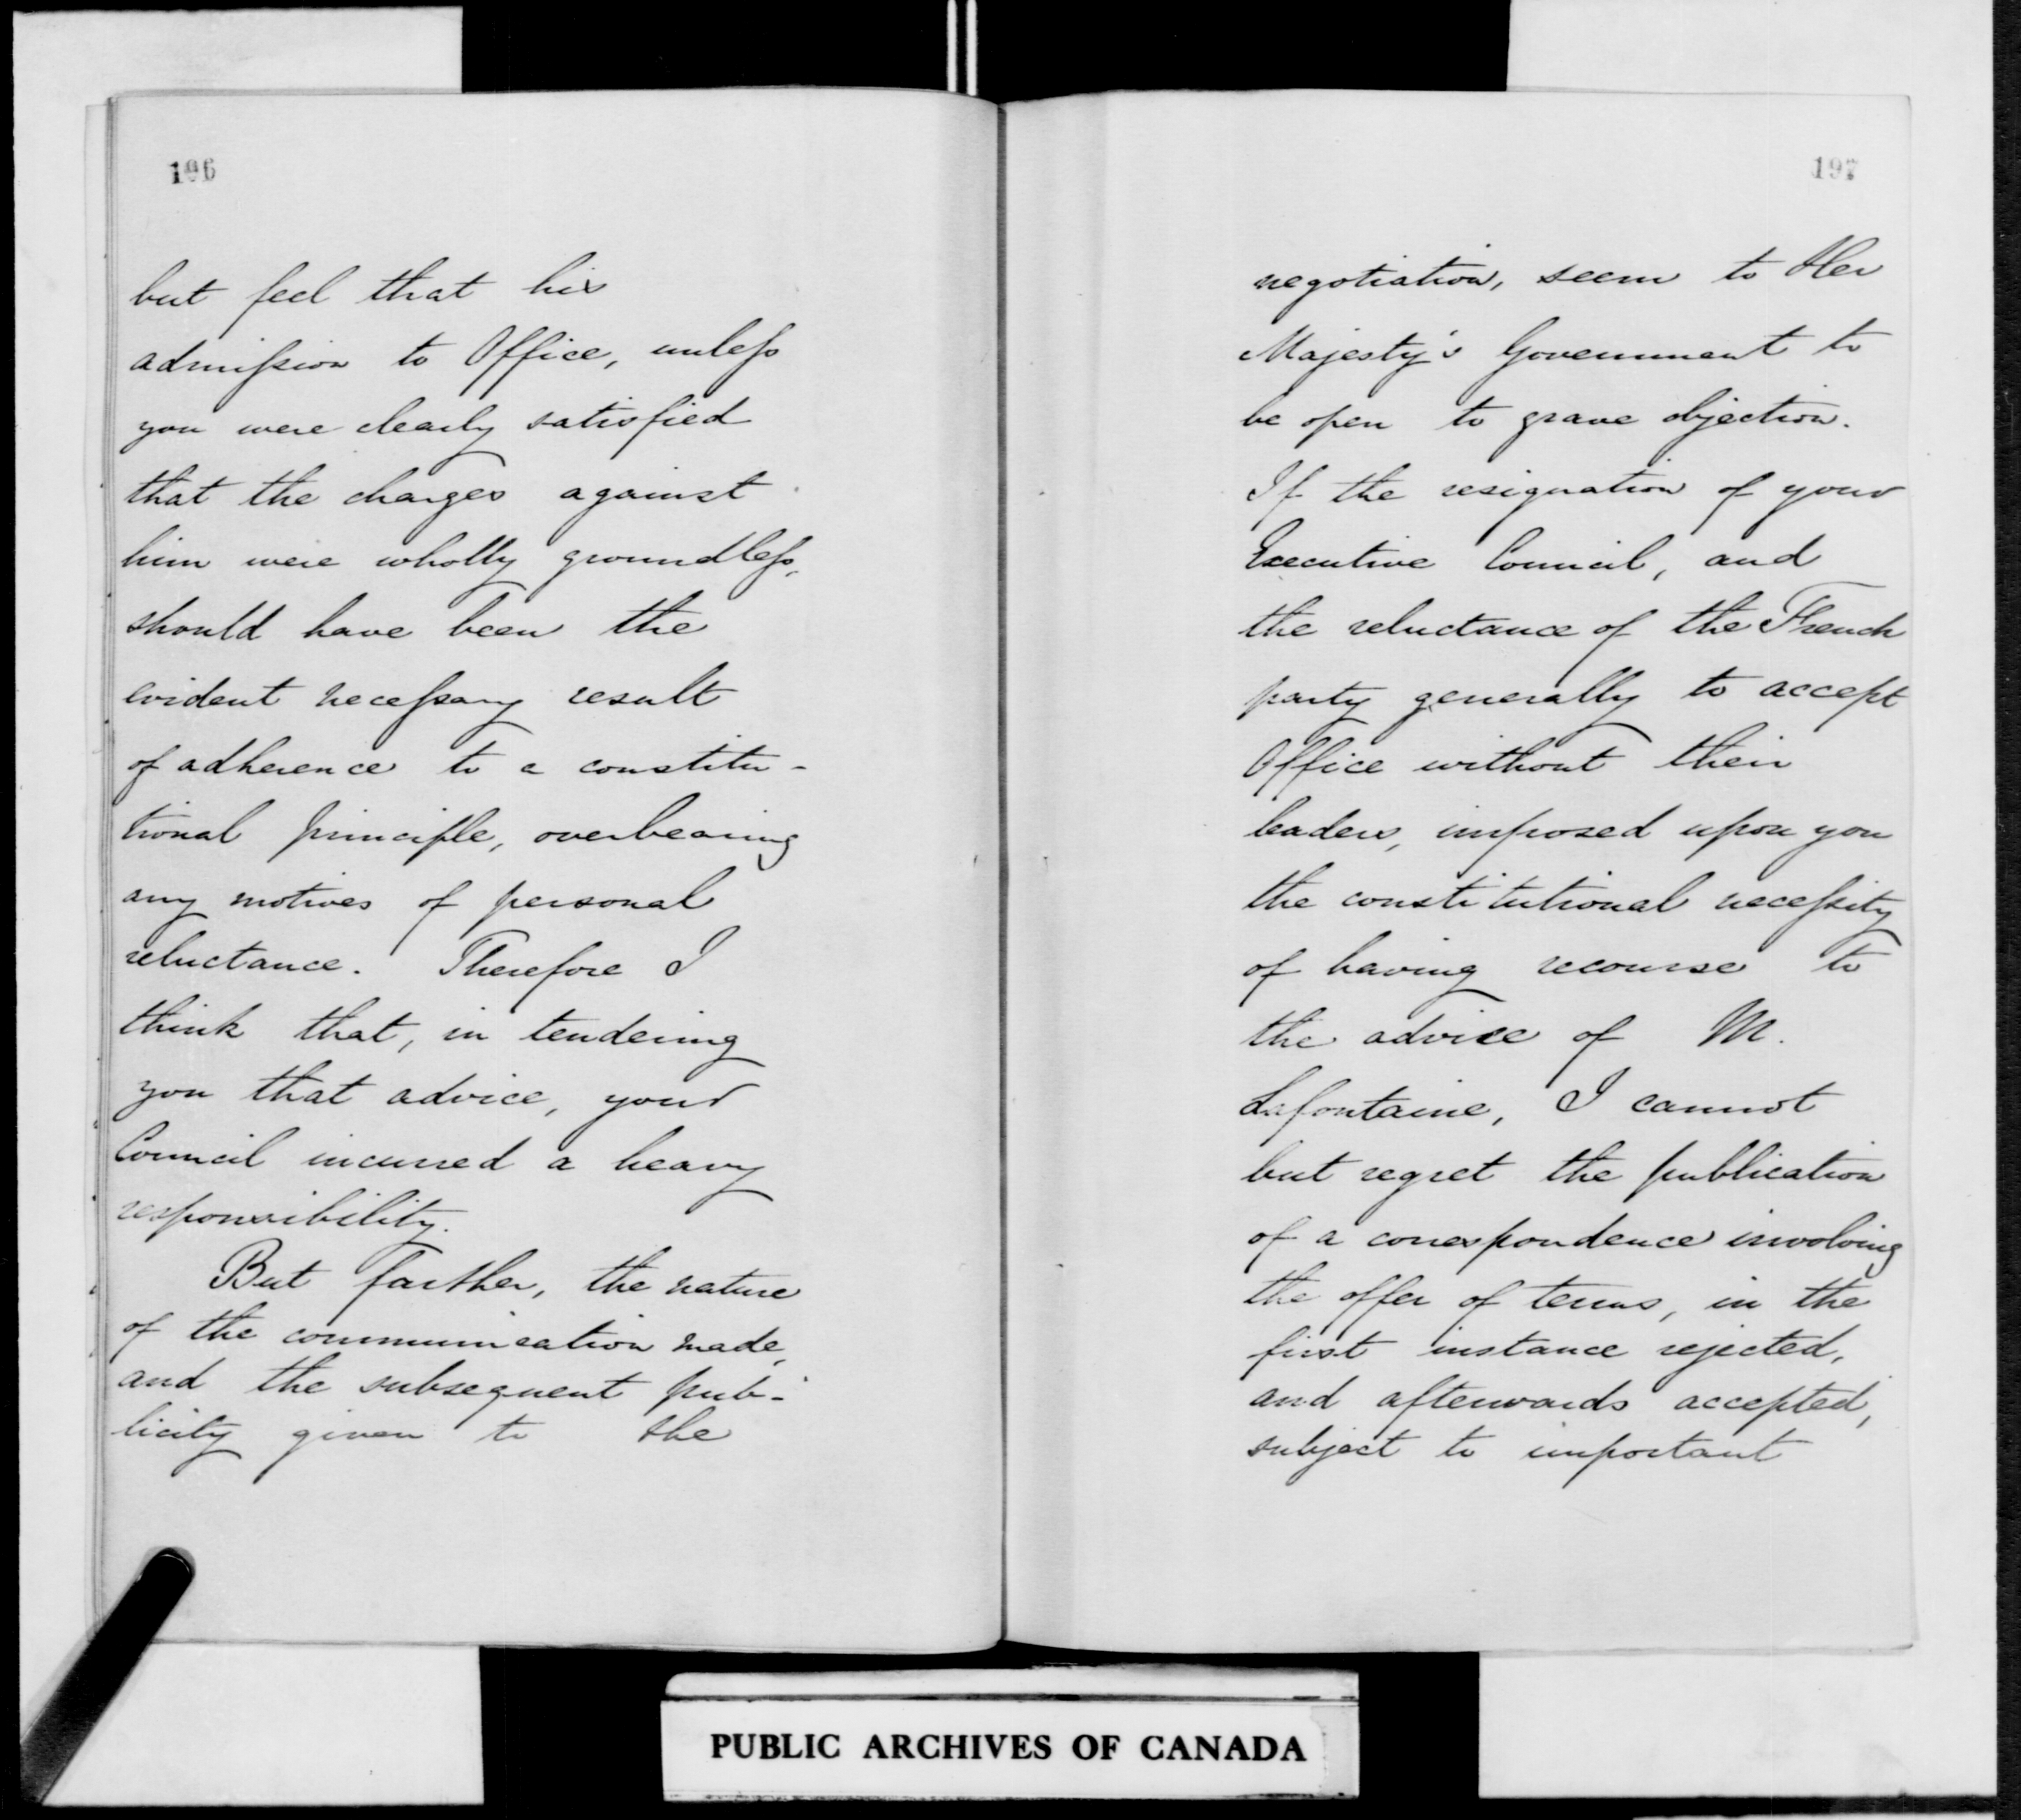 196
but feel that his
admission to Office, unless
you were clearly satisfied
that the charges against
him were wholly groundless,
should have been the
evident necessary result
of adherence to a constitu-
tional principle, overbearing
any motives of personal
reluctance. Therefore I
think that, in tendering
you that advice, your
Council incurred a heavy
responsibility.
But farther, the nature
of the communication made,
and the subsequent pub-
licity given to the
197
negotiation, seem to Her
Majesty's Government to
be open to grave objection.
If the resignation of your
Executive Council, and
the reluctance of the French
party generally to accept
Office without their
leaders, imposed upon you
the constitutional necessity
of having recourse to
the advice of M.
Lafontaine, I cannot
but regret the publication
of a correspondence involving
the offer of terms, in the
first instance rejected,
and afterwards accepted,
subject to important
PUBLIC ARCHIVES OF CANADA